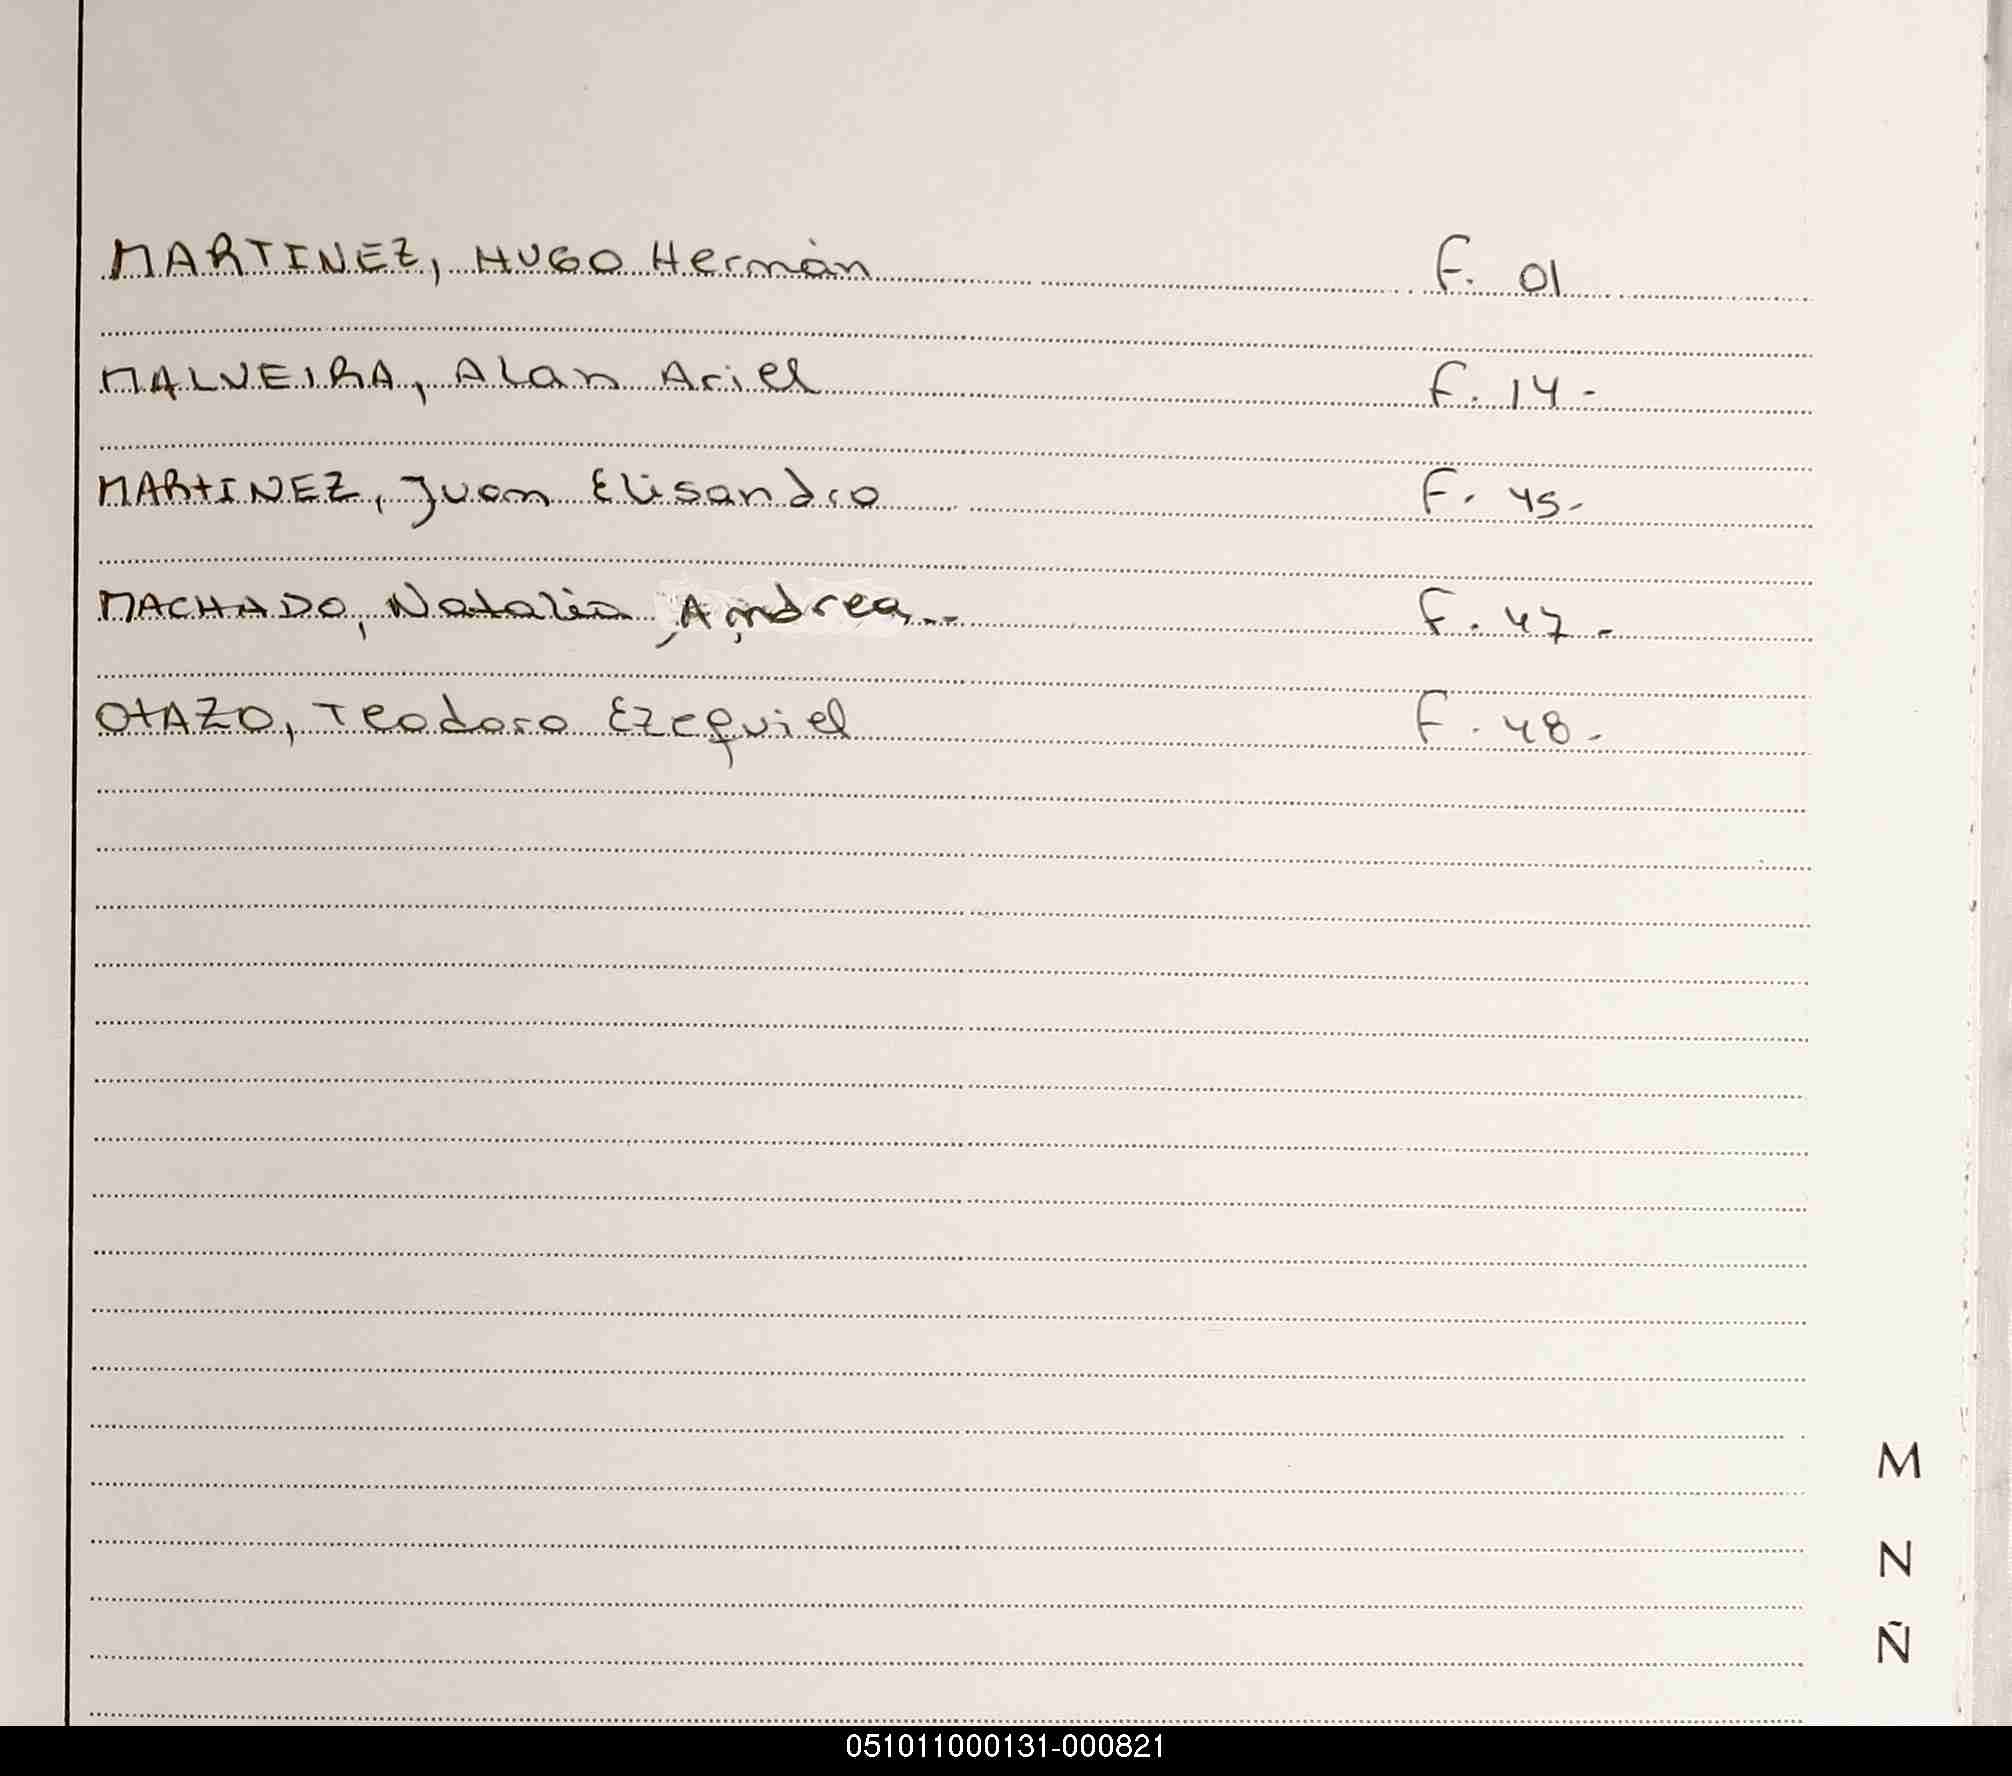 MARTINEZ, HUGO Hernán F. 01
MALVEIRA, Alan Ariel F. 14-
MARTINEZ, Juan Elisandro F. 45-
MACHADO, Natalia Andrea.-- F. 47-
OTAZO, Teodoro Ezequiel F. 48-
M
N
Ñ
051011000131-000821